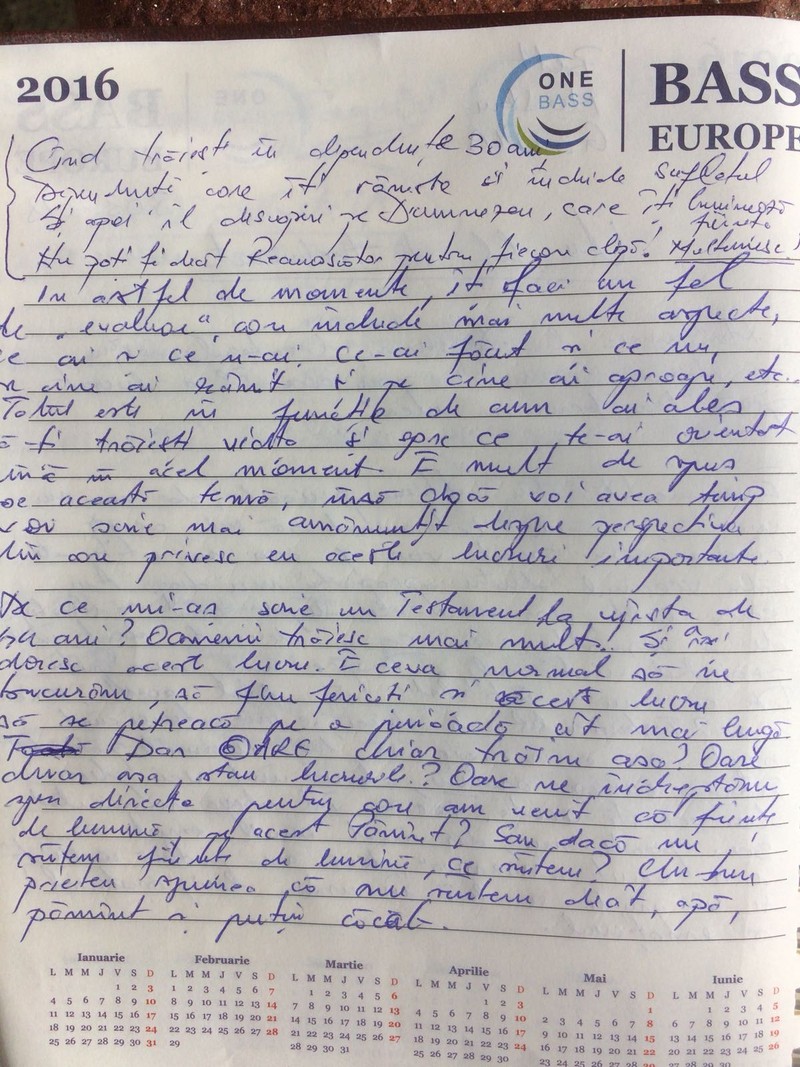 2016
ONE
BASS
BASS
EUROPE
Când trăiești în dependențe 30 ani
Dependente care îți rănește și închide sufletul
Și apoi îl descoperi pe Dumnezeu, care îți luminează
ființa
Nu poți fi decât Recunoscător pentru fiecare clipă. Mulțumesc!
În astfel de momente, îți faci un fel
de „evaluare", care include mai multe aspecte,
ce ai și ce n-ai. Ce-ai făcut și ce nu,
pe cine ai rănit și pe cine ai aproape, etc..
Totul este în funcție de cum ai ales
să-ți trăiești viața și spre ce te-ai orientat
până în acel moment. E mult de spus
pe această temă, însă după voi avea timp
voi scrie mai amănunțit despre perspectiva
din care privesc eu aceste lucruri importante.
De ce mi-aș scrie un Testament la vârsta de
ani? Oamenii trăiesc mai mult! Și își
doresc acest lucru. E ceva normal să ne
bucurăm, să fim fericiți și acest lucru
să se petreacă pe o perioadă cât mai lungă
Dar OARE chiar trăim așa? Oare
chiar așa stau lucrurile? Oare ne îndreptăm
spre direcția pentru care am venit ca ființe
de lumină, pe acest Pământ? Sau dacă nu
suntem ființe de lumină, ce suntem? Un bun
prieten spunea că nu suntem decât, apă,
pământ și puțin căcat.
Ianuarie
L M M J V S D
1 2 3
4 5 6 7 8 9 10
11 12 13 14 15 16 17
18 19 20 21 22 23 24
25 26 27 28 29 30 31
Februarie
L M M J V S D
1 2 3 4 5 6 7
8 9 10 11 12 13 14
15 16 17 18 19 20 21
22 23 24 25 26 27 28
29
Martie
L M M J V S D
1 2 3 4 5 6
7 8 9 10 11 12 13
14 15 16 17 18 19 20
21 22 23 24 25 26 27
28 29 30 31
Aprilie
L M M J V S D
1 2 3
4 5 6 7 8 9 10
11 12 13 14 15 16 17
18 19 20 21 22 23 24
25 26 27 28 29 30
Mai
L M M J V S D
1
2 3 4 5 6 7 8
9 10 11 12 13 14 15
16 17 18 19 20 21 22
23 24 25 26 27 28 29
Iunie
L M M J V S D
1 2 3 4 5
6 7 8 9 10 11 12
13 14 15 16 17 18 19
20 21 22 23 24 25 26